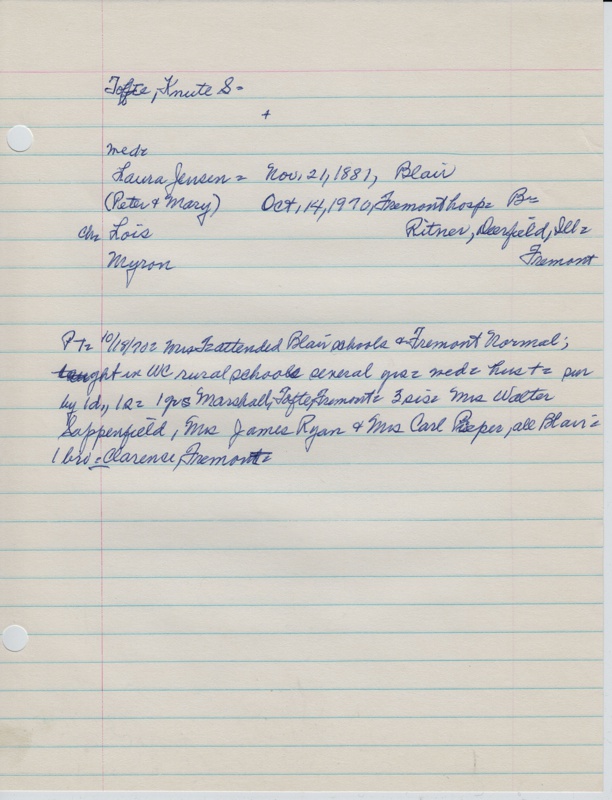 Tofte, Knute S=
+
med=
Laura Jensen = Nov. 21, 1881, Blair
(Peter & Mary) Oct, 14, 1970, Fremont hosp= B=
ch= Lois Ritner, Deerfield, Ill=
Myron Fremont
PT= 10/19/70= Mrs T= attended Blair schools & Fremont Normal;
taught in WC rural schools several yrs= med= hus t= sur
by 1d,, 1s= 1 grs Marshall, Tofte, Fremont= 3 sis= Mrs Walter
Sappenfield, Mrs James Ryan & Mrs Carl Pieper, all Blair=
1 bro= Clarence, Fremont=